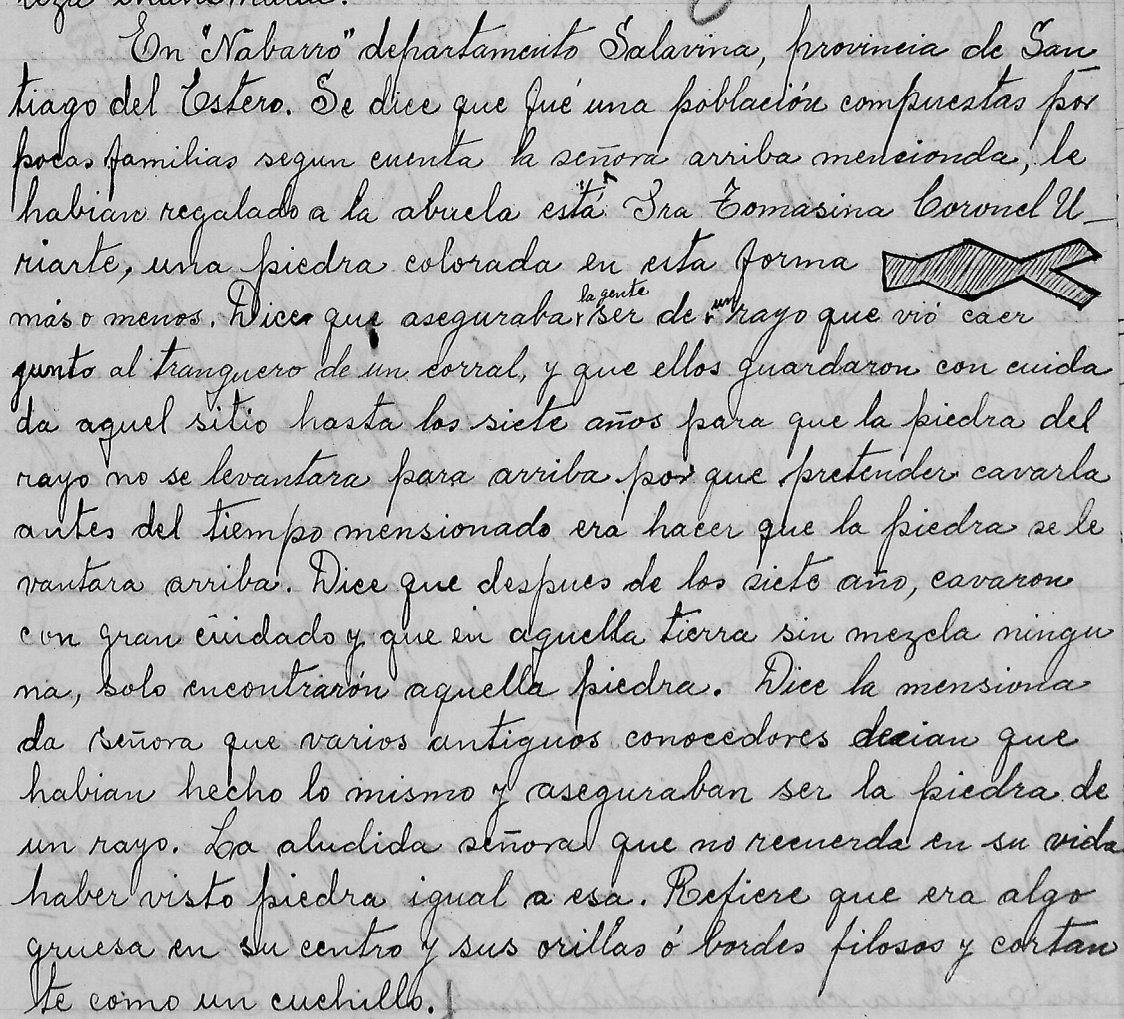 En "Nabarro" departamento Salavina, provincia de San
tiago del Estero. Se dice que fué una población compuestas por
pocas familias segun cuenta la señora arriba mencionda, le
habian regalado a la abuela está Sra Tomasina Coronel U-
riarte, una piedra colorada en esta forma
más o menos. Dice que aseguraba la gente ser de un rayo que vió caer
junto al tranquero de un corral, y que ellos guardaron con cuida
da aquel sitio hasta los siete años para que la piedra del
rayo no se levantara para arriba por que pretender cavarla
antes del tiempo mensionado era hacer que la piedra se le
vantara arriba. Dice que despues de los siete año, cavaron
con gran cuidado y que en aquella tierra sin mezcla ningu
na, solo encontrarón aquella piedra. Dice la mensiona
da señora que varios antiguos conocedores decian que
habian hecho lo mismo y aseguraban ser la piedra de
un rayo. La aludida señora que no recuerda en su vida
haber visto piedra igual a esa. Refiere que era algo
gruesa en su centro y sus orillas ó bordes filosos y cortan
te como un cuchillo.